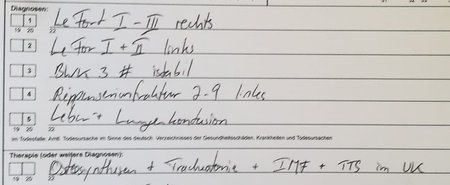 Diagnosen:
1 Le Fort I - III rechts
19 20 22
2 Le For I + II links
3 BWK 3 # istabil
4 Rippenserienfraktur 2-9 links
5 Leber + Lungenkontusion
19 20 22
im Todesfalle: Amtl. Todesursache im Sinne des deutsch. Verzeichnisses der Gesundheitsschäden, Krankheiten und Todesursachen
Therapie (oder weitere Diagnosen):
Osteosynthesen + Tracheotomie + IMF + TTS im UK